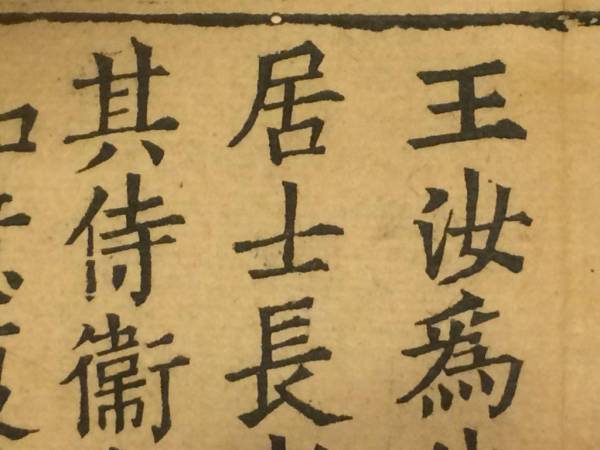 王汝為
居士長
其侍衛